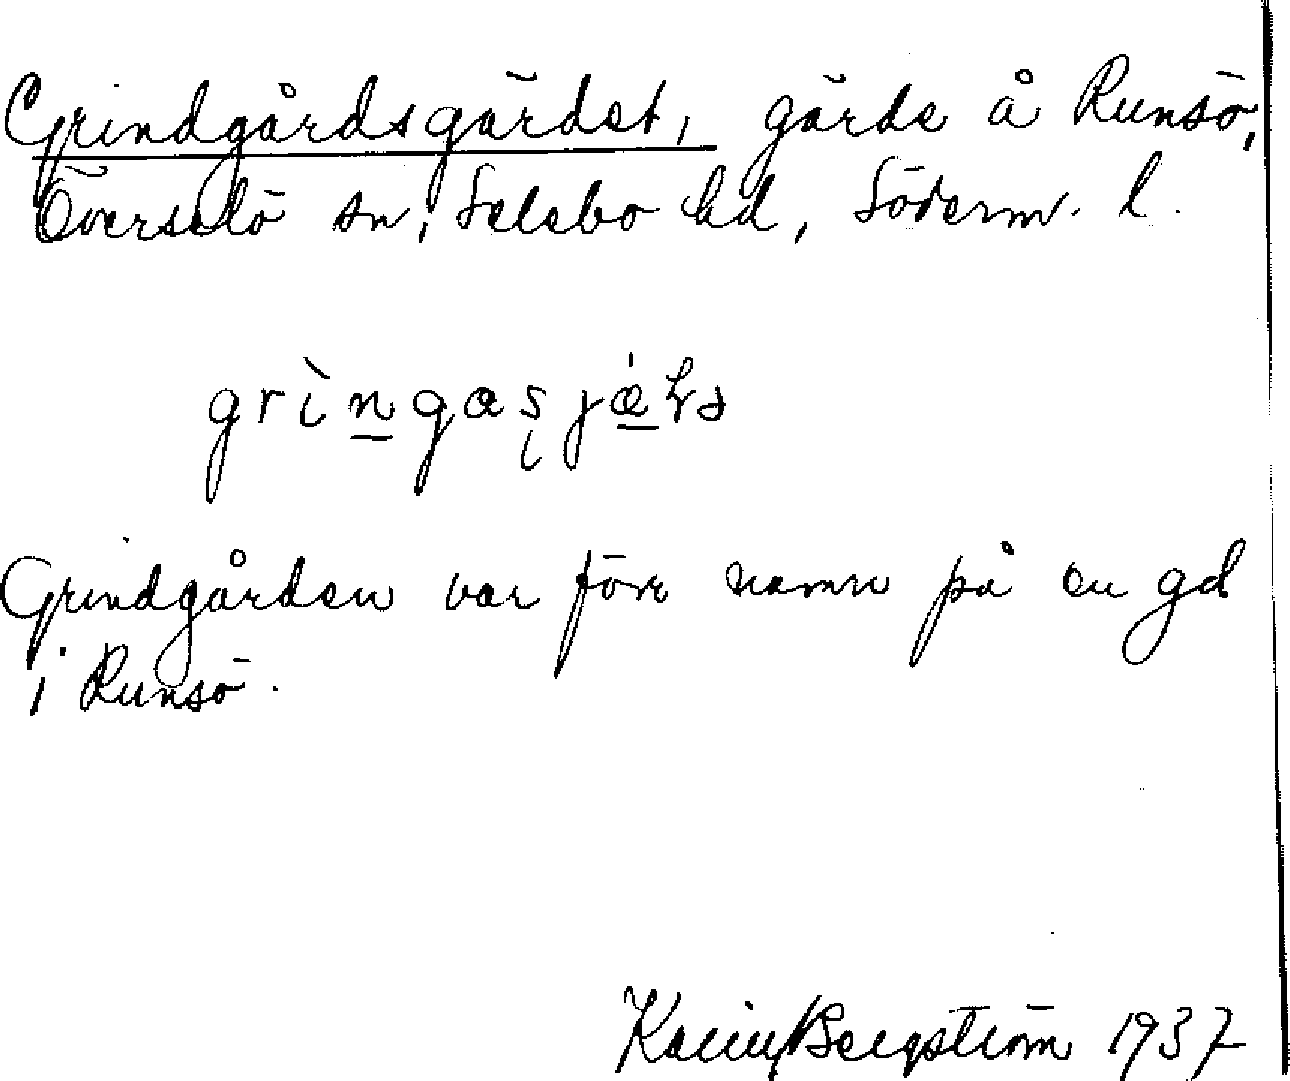 Grindgårdsgärdet, gärde å Runsö,
Överselö sn, Selebo hd, Söderm. l.
Grindgården var förr namn på en gd
i Runsö.
Karin Bergström 1937